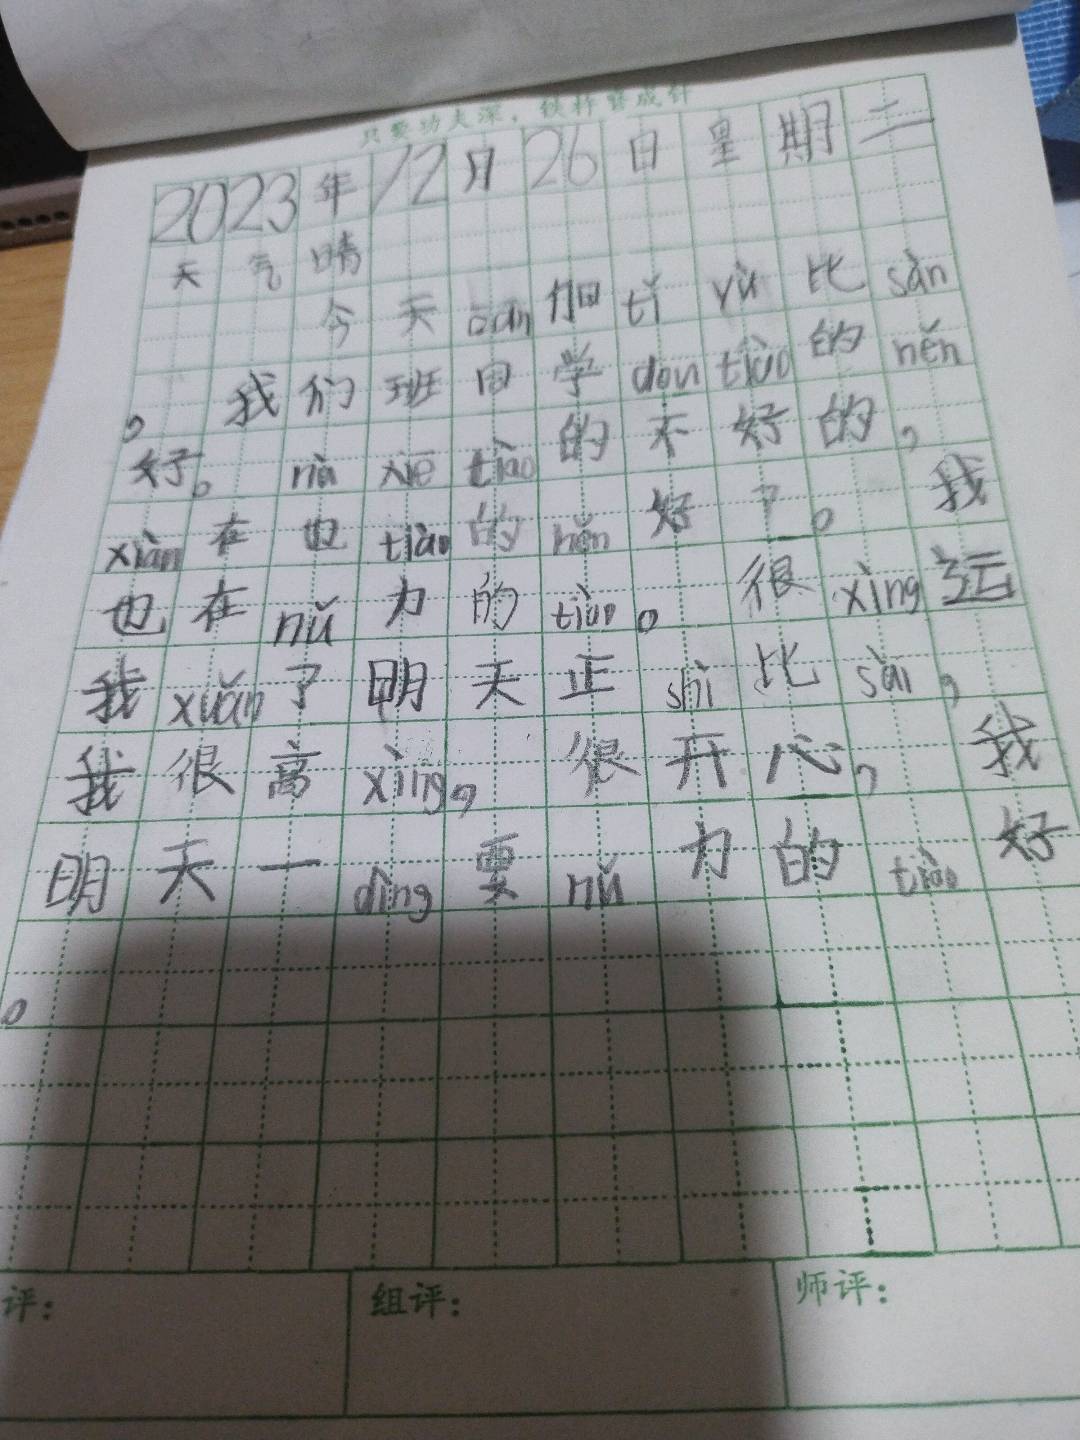 只要功夫深，铁杵磨成针
2023年12月26日星期二
天气晴
今天cān加tǐ yù比sàn
。我们班同学dou tiào的hěn
好。nà xiē tiào的不好的，
xiàn在也tiào的hěn好了。我
也在nǔ力的tiào。很xìng运
我xuǎn了明天正shì比sài，
我很高xìng，很开心，我
明天一dìng要nǔ力的tiào好
。
评：
组评：
师评：